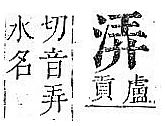 㳥
盧
貢
切音弄
水名